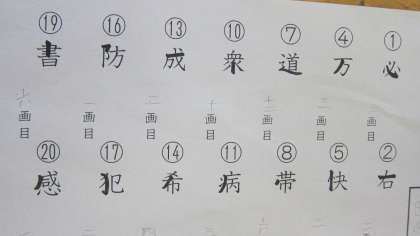 ① 必
画目
② 右
④ 万
画目
⑤ 快
⑦ 道
画目
⑧ 帯
⑩ 衆
十画目
⑪ 病
⑬ 成
二画目
⑭ 希
⑯ 防
一画目
⑰ 犯
⑲ 書
六画目
⑳ 感